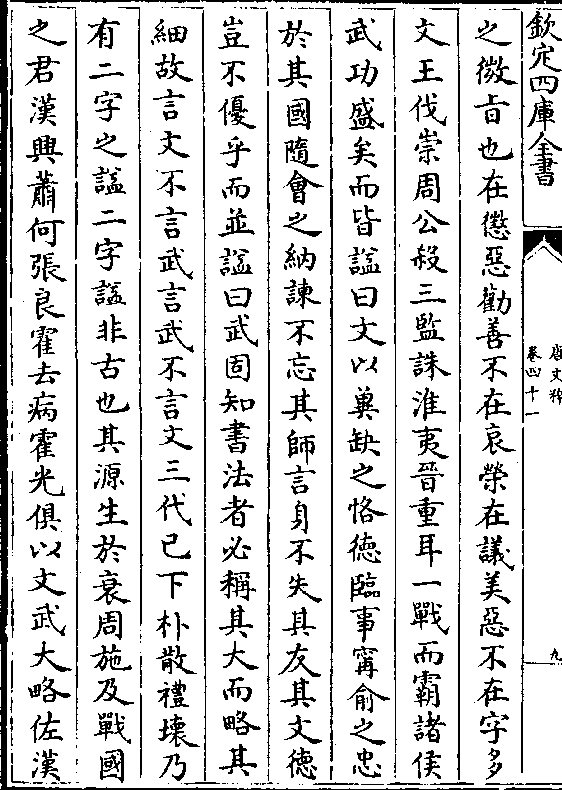 欽定四庫全書
唐文粹
卷四十一
九
之微旨也在懲惡勸善不在哀榮在議美惡不在字多
文王伐崇周公殺三監誅淮夷晉重耳一戰而霸諸侯
武功盛矣而皆諡曰文以冀缺之恪德臨事甯俞之忠
於其國隨會之納諫不忘其師言身不失其友其文德
豈不優乎而並諡曰武固知書法者必稱其大而略其
細故言文不言武言武不言文三代已下朴散禮壞乃
有二字之諡二字諡非古也其源生於衰周施及戰國
之君漢興蕭何張良霍去病霍光俱以文武大略佐漢